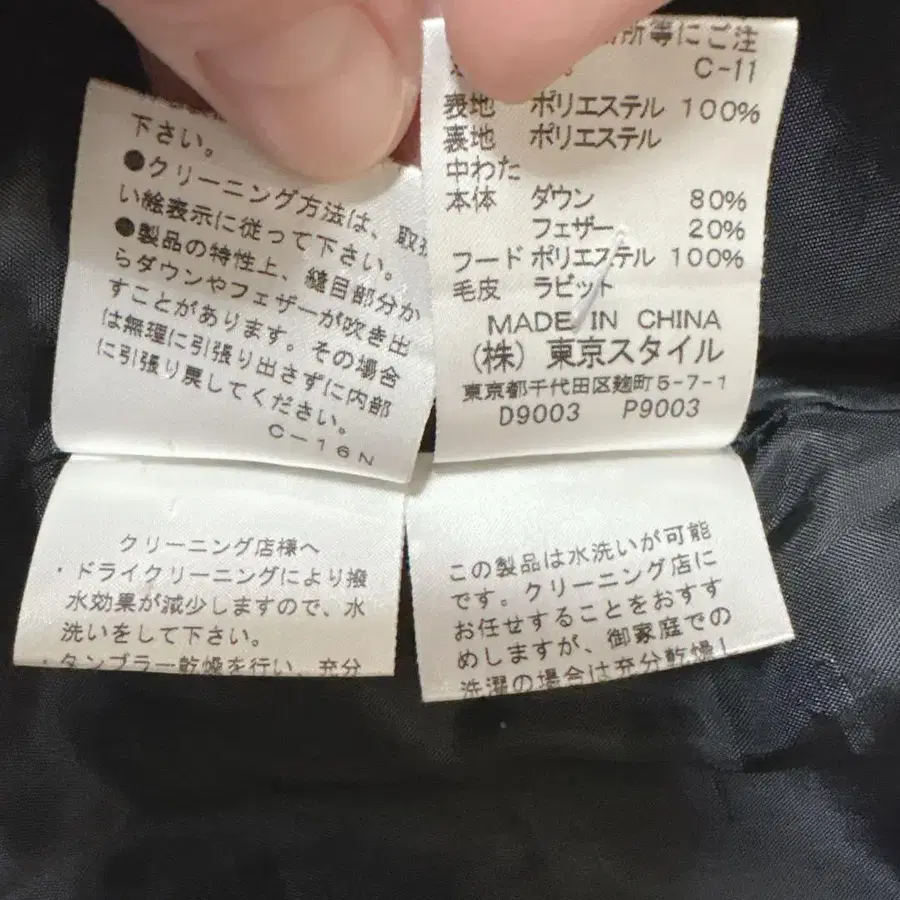 下さい。
●クリーニング方法は、取扱
い絵表示に従って下さい。
●製品の特性上、縫目部分か
らダウンやフェザーが吹き出
すことがあります。その場合
は無理に引張り出さずに内部
に引張り戻してください。
C-16N
所等にご注
C-11
表地 ポリエステル 100%
裏地 ポリエステル
中わた
本体 ダウン 80%
フェザー 20%
フード ポリエステル 100%
毛皮 ラビット
MADE IN CHINA
(株) 東京スタイル
東京都千代田区麹町5-7-1
D9003 P9003
クリーニング店様へ
・ドライクリーニングにより撥
水効果が減少しますので、水
洗いをして下さい。
・タンブラー乾燥を行い、充分
この製品は水洗いが可能
です。クリーニング店に
お任せすることをおすす
めしますが、御家庭での
洗濯の場合は充分乾燥し